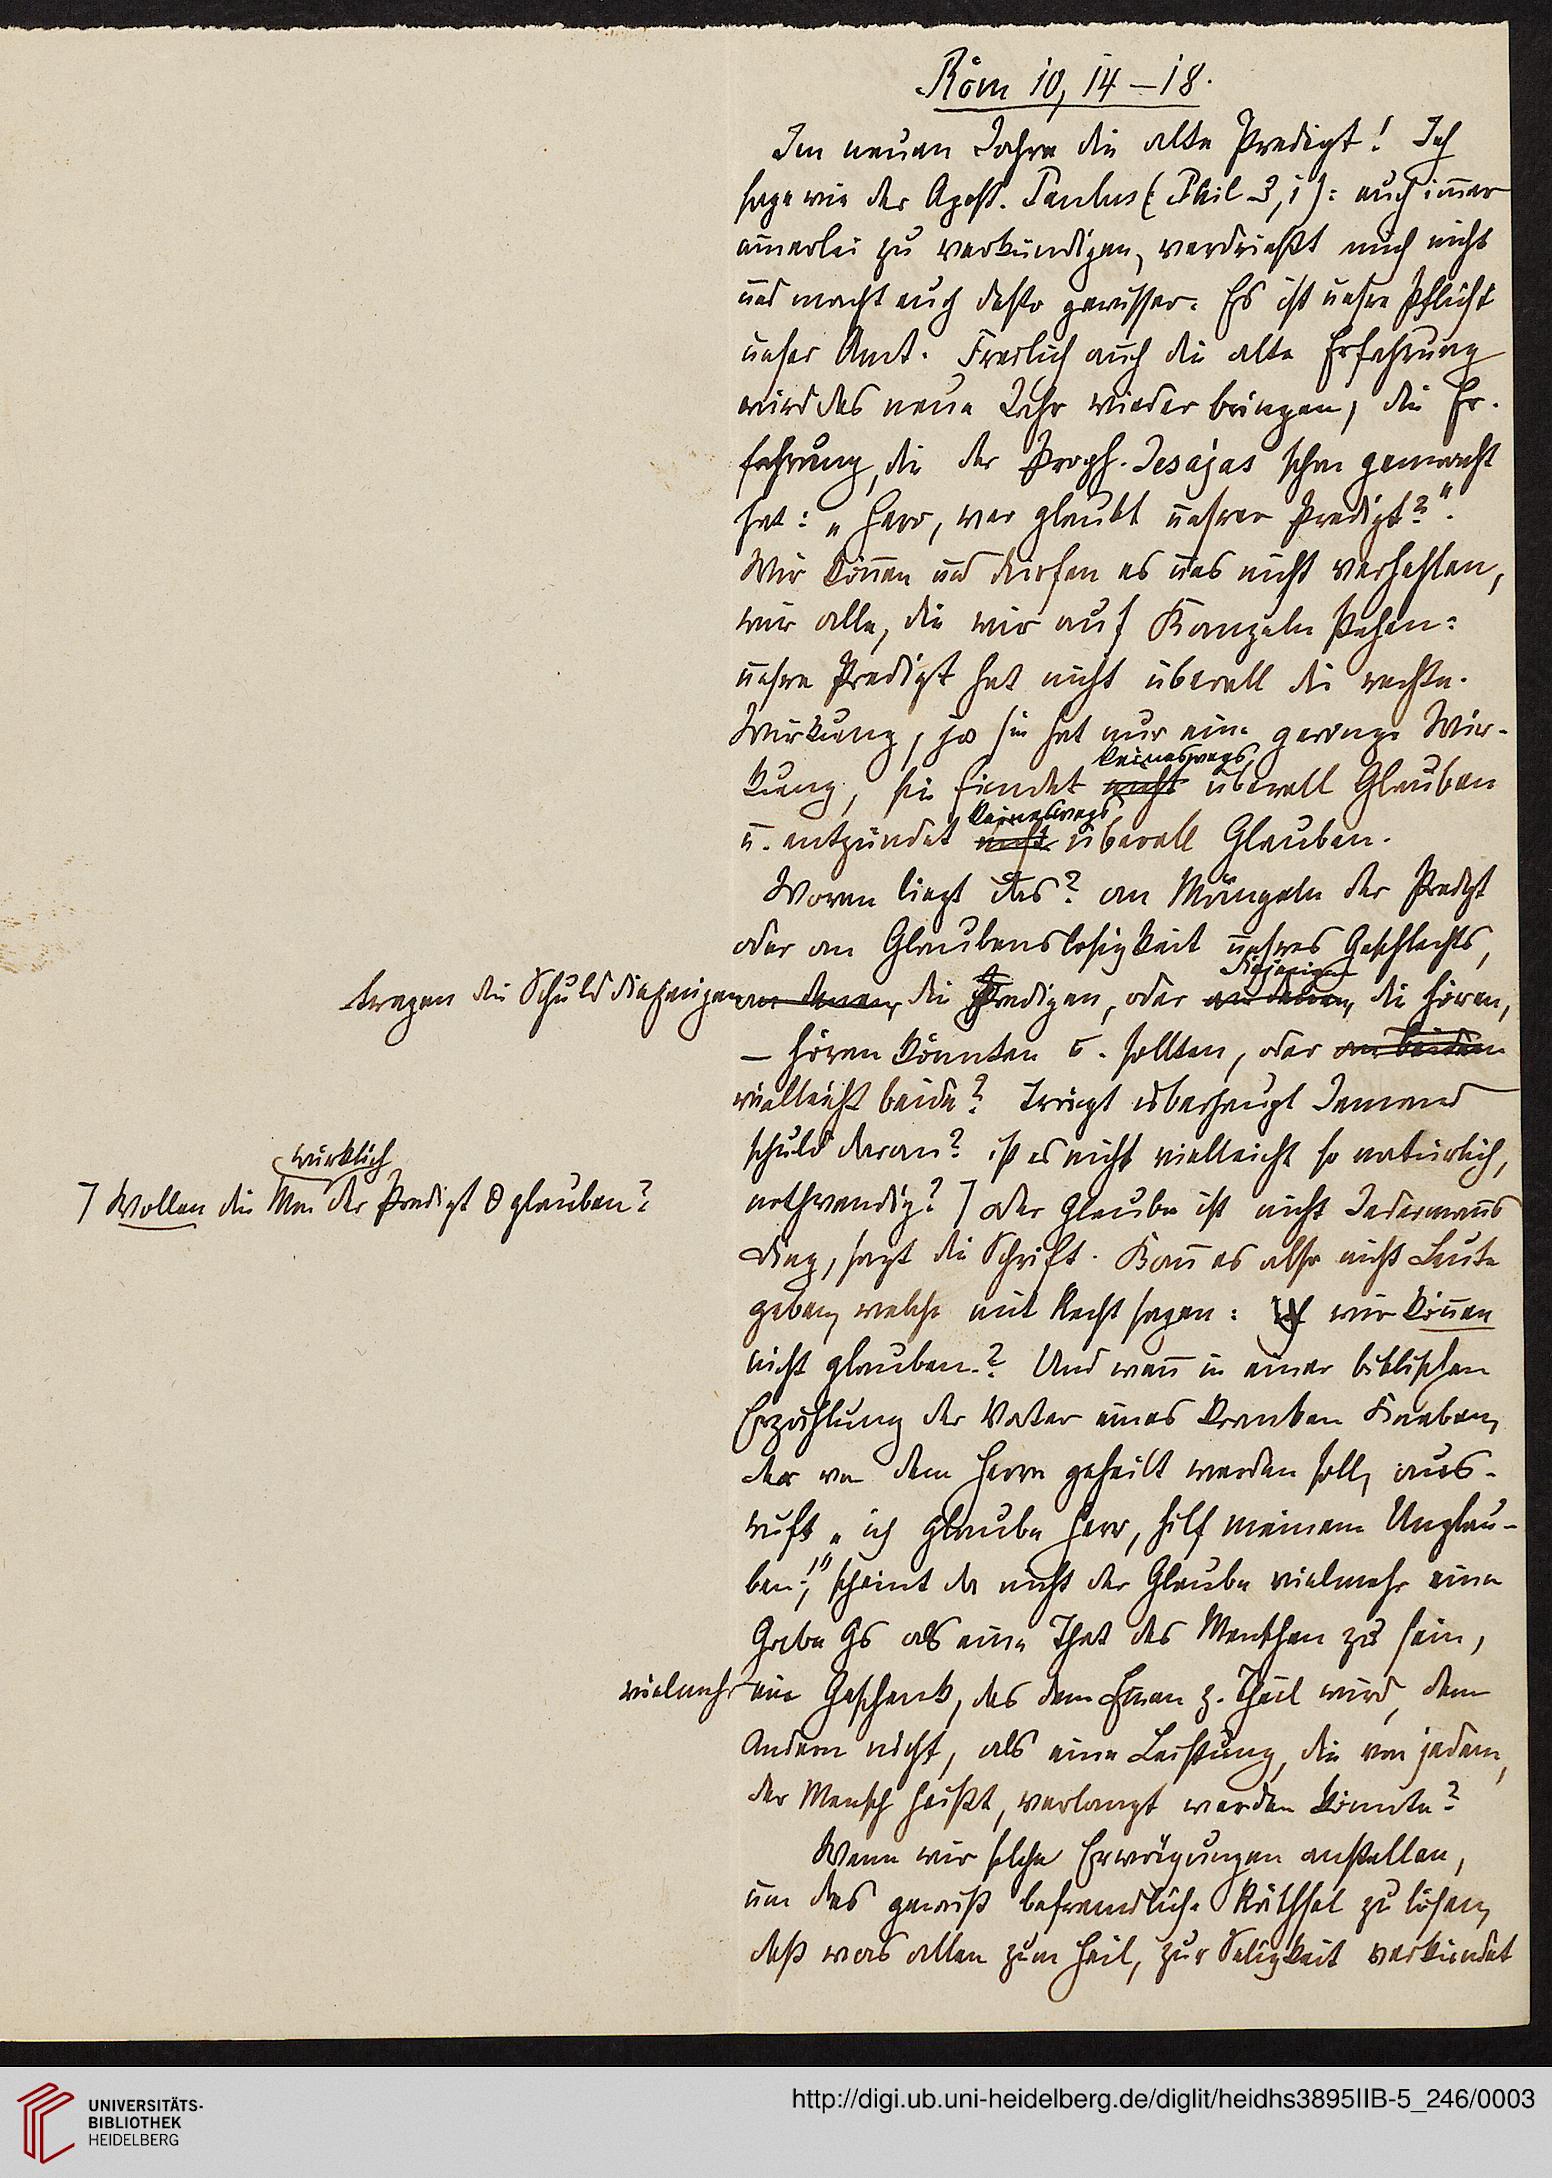 Röm 10, 14–18.
Im neuen Jahre die alte Predigt! Ich
sage wie der Apost. Paulus (Phil 3,1): euch im̄er
einerlei zu verkündigen, verdrießt mich nicht
und macht euch desto gewisser. Es ist unsre Pflicht
unser Amt. Freilich auch die alte Erfahrung
wird das neue Jahr wieder bringen, die Er-
fahrung, die der Proph. Jesajas schon gemacht
hat: „Herr, wer glaubt unsrer Predigt?“.
Wir kön̄en und dürfen es uns nicht verhehlen,
wir alle, die wir auf Kanzeln stehen:
unsre Predigt hat nicht überall die rechte
Wirkung, ja sie hat nur eine geringe Wir-
keineswegs
kung, sie findet nicht überall Glauben
keineswegs
u. entzündet nicht überall Glauben.
Woran liegt das? an Mängeln der Predigt
oder an Glaubenslosigkeit unsres Geschlechts,
diejenigen
tragen die Schuld diejenigen an denen, die predigen, oder an denen, die hören,
– hören könnten o. sollten, oder an beiden
vielleicht beide? Trägt überhaupt Jemand
schuld daran? ist es nicht vielleicht so natürlich,
wirklich
⁊ Wollen die Men der Predigt glauben?
nothwendig? ⁊ oder Glaube ist nicht Jedermanns
Ding, sagt die Schrift. Kan̄ es also nicht Leute
geben, welche mit Recht sagen: wir kön̄en
nicht glauben? Und wen̄ in einer biblischen
Erzählung der Vater eines kranken Knaben,
der von dem Herrn geheilt werden soll, aus-
ruft „ich glaube Herr, hilf meinem Unglau-
ben!“, scheint da nicht der Glaube vielmehr eine
Gabe Gs als eine That des Menschen zu sein,
vielmehr ein Geschenk, das dem Einen z. Theil wird, dem
Andern nicht, als eine Leistung, die von jedem,
der Mensch heißt, verlangt werden könnte?
Wenn wir solche Erwägungen anstellen,
um das gewiß befremdliche Räthsel zu lösen,
daß was allen zum Heil, zur Seligkeit verkündet
UNIVERSITÄTS-
BIBLIOTHEK
HEIDELBERG
http://digi.ub.uni-heidelberg.de/diglit/heidhs3895IIB-5_246/0003